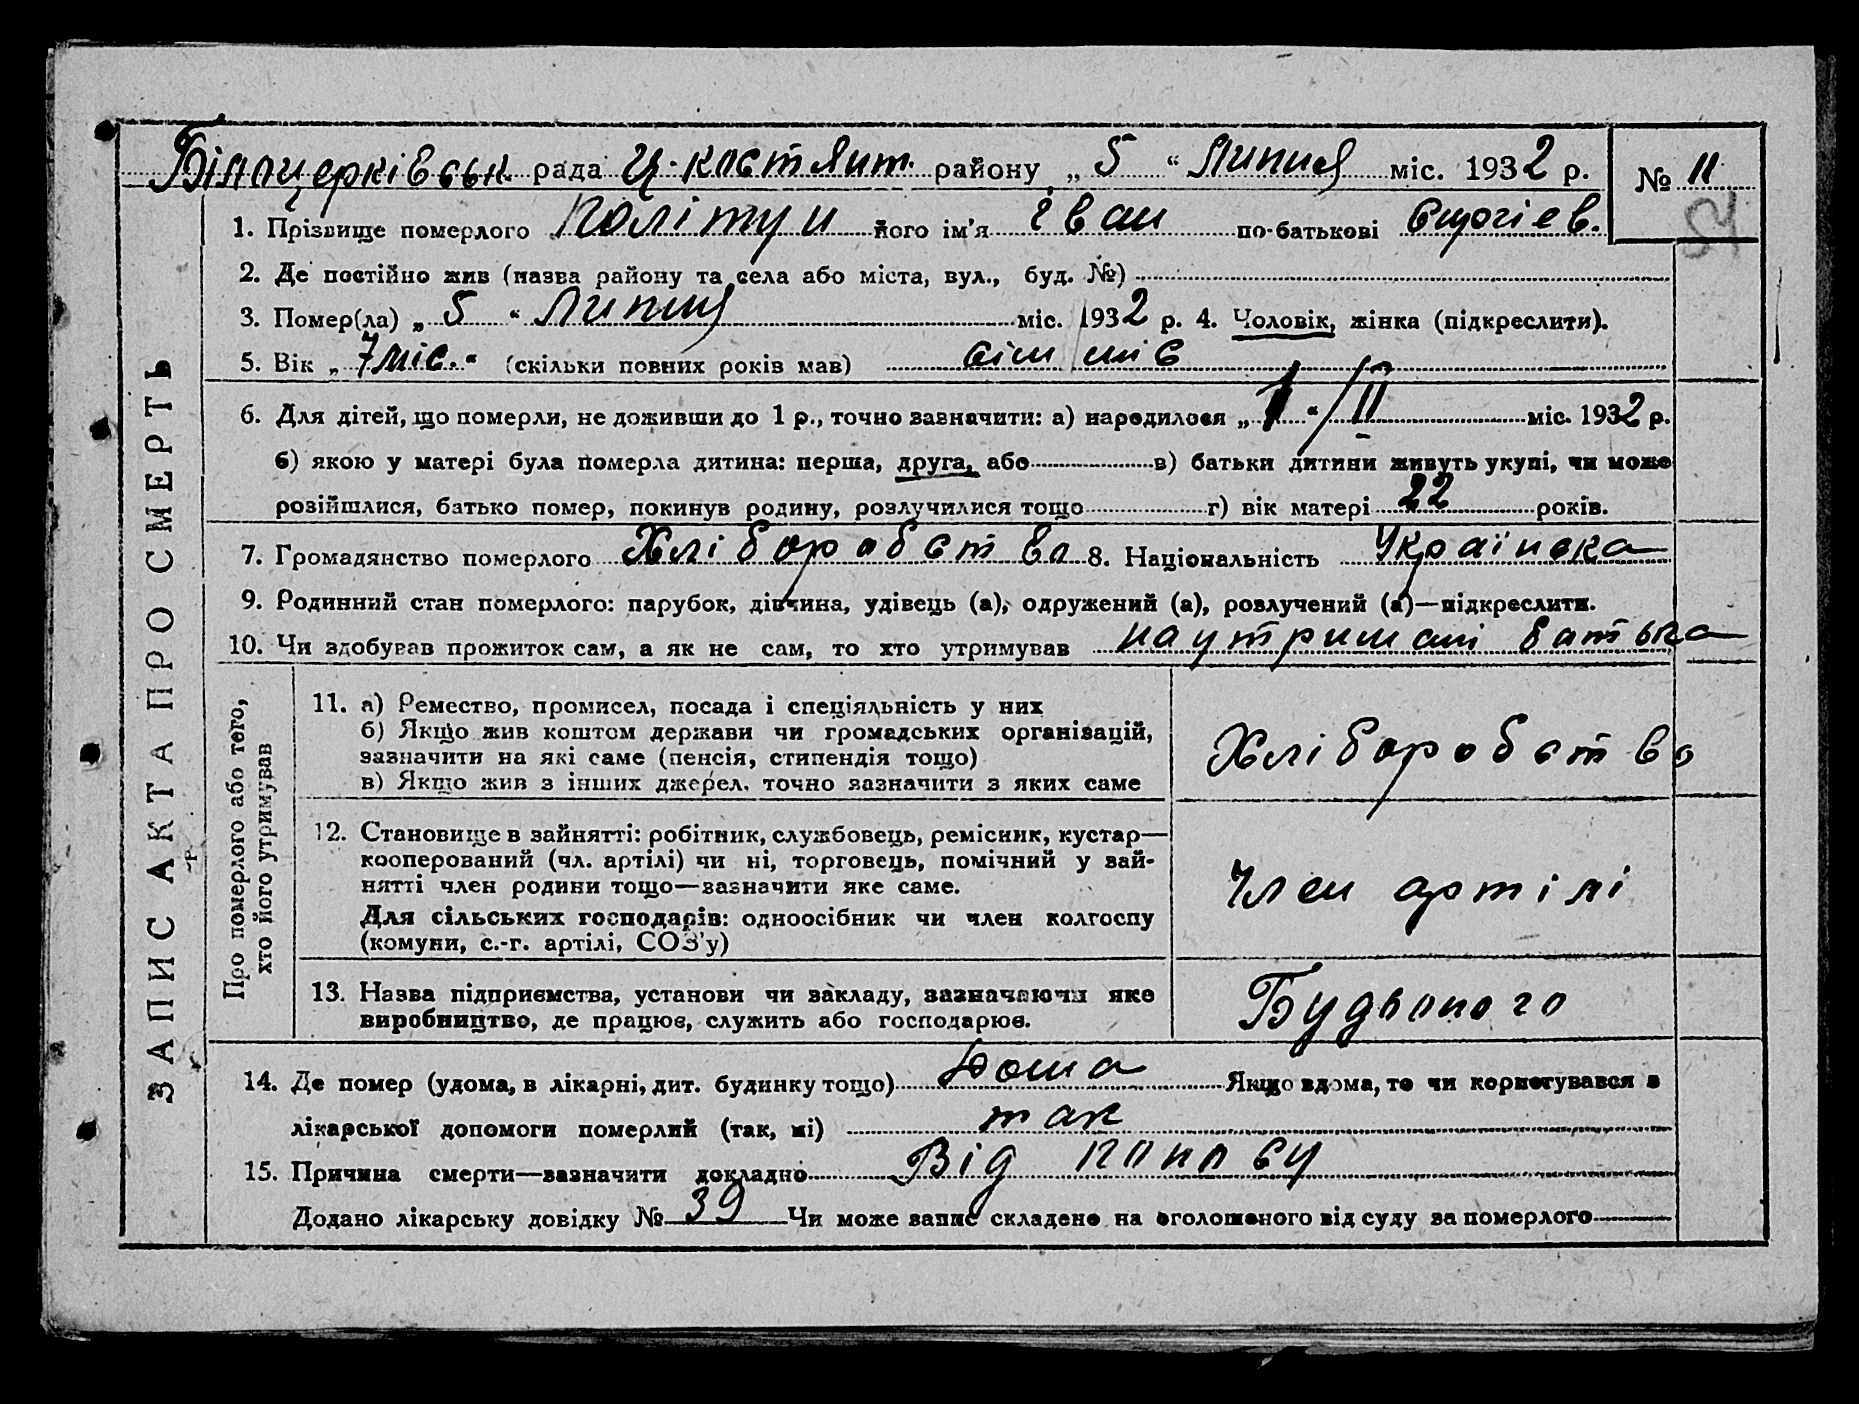 Білоцерківськ. рада району „ 5 “ Липня міс. 1932 р. № 11
1. Прізвище померлого Політун його ім'я Іван по-батькові
2. Де постійно жив (назва району та села або міста, вул., буд. №)
3. Помер(ла) „ 5 “ Липня міс. 1932 р. 4. Чоловік, жінка (підкреслити).
5. Вік „ 7 міс. “ (скільки повних років мав) сім міс
6. Для дітей, що померли, не доживши до 1 р., точно зазначити: а) народилося „ 1 “ / II міс. 1932 р.
б) якою у матері була померла дитина: перша, друга, або в) батьки дитини живуть укупі, чи може
розійшлися, батько помер, покинув родину, розлучилися тощо г) вік матері 22 років.
7. Громадянство померлого Хліборобство 8. Національність Українська
9. Родинний стан померлого: парубок, дівчина, удівець (а), одружений (а), розлучений (а)—підкреслити.
10. Чи здобував прожиток сам, а як не сам, то хто утримував на утриманні батька
ЗАПИС АКТА ПРО СМЕРТЬ
Про померлого або того,
хто його утримував
11. а) Ремество, промисел, посада і спеціяльність у них
б) Якщо жив коштом держави чи громадських організацій,
зазначити на які саме (пенсія, стипендія тощо)
в) Якщо жив з інших джерел, точно зазначити з яких саме
Хліборобство
12. Становище в зайнятті: робітник, службовець, ремісник, кустар—
кооперований (чл. артілі) чи ні, торговець, помічний у зай-
нятті член родини тощо—зазначити яке саме.
Для сільських господарів: одноосібник чи член колгоспу
(комуни, с.-г. артілі, СОЗ'у)
Член артілі
13. Назва підприємства, установи чи закладу, зазначаючи яке
виробництво, де працює, служить або господарює.
Будьоного
14. Де помер (удома, в лікарні, дит. будинку тощо) Дома Якщо вдома, то чи користувався з
лікарської допомоги померлий (так, ні) так
15. Причина смерти—зазначити докладно Від поносу
Додано лікарську довідку № 39 Чи може запис складено на оголошеного від суду за померлого